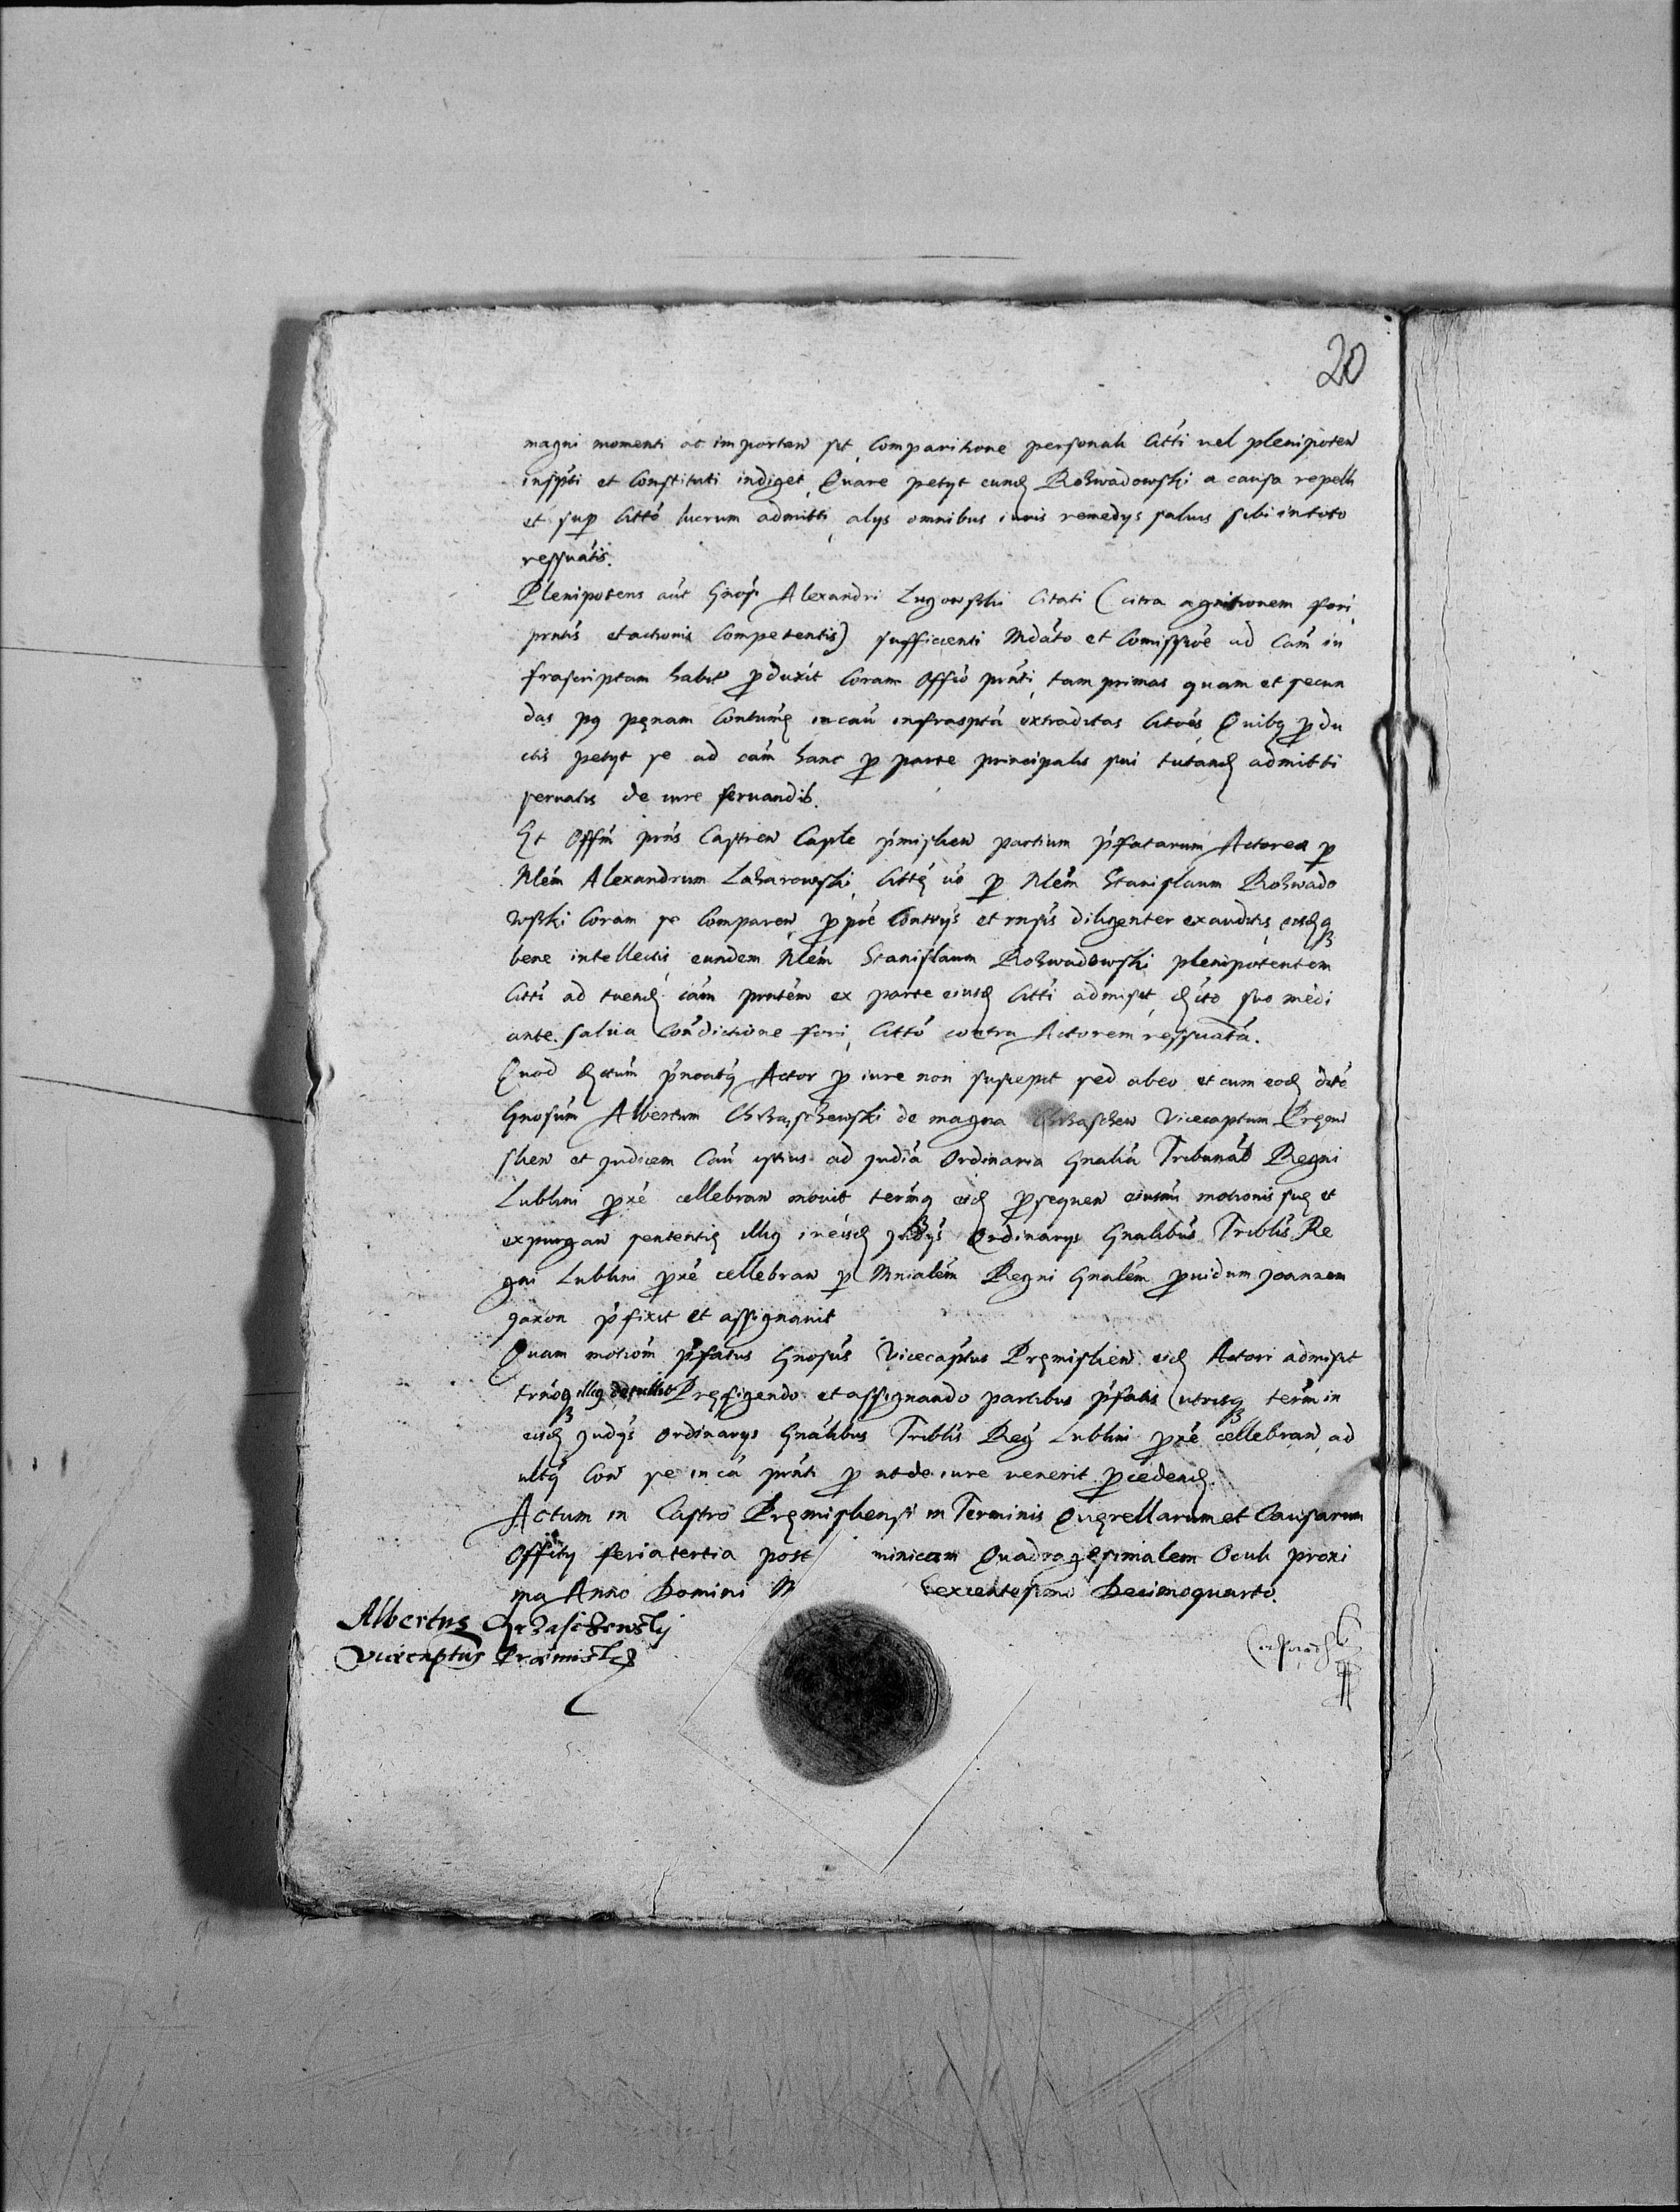 20
magni momenti ac importan sit, Comparitione personali Citti vel plenipoten
inspti et Constituti indiget, Quare petyt eund Rozwadowski a causa repelli
et sup Citto lucrum admitti, alys omnibus iuris remedys saluis sibi in toto
ressuatis.
Plenipotens aut Gnosi Alexandri Lugowski Citati (citra agnitionem fori,
pntis et actionis Competentis) sufficienti Mdato et Comissive ad Cam in
frascriptam habit pduxit Coram Offio pnti, tam primas quam et secun
das pq pęnam Contumę in cau infrasptá extraditas Citões, Quibq pdu
ctis petyt se ad cam hanc p parte principalis sui tutand admitti
seruatis de iure seruandis.
Et Offm pns Castren Capte pmislien partium pfatarum Actorea p
Nlem Alexandrum Lazarowski, Cittę uo p Nlem Stanislaum Rozwado
wski Coram se Comparen, ppte Contuys et rnsis diligenter exauditis, eisdq
bene intellectis, eundem Nlem Stanislaum Rozwadowski plenipotentem
Citti ad tuend cam pntem ex parte eiusd Citti admisit, dcito suo medi
ante. salua Condictione fori, Citto contra Actorem ressuata.
Quod dctum pnoatq Actor p iure non suscepit sed ab eo et cum eod dcto
Gnosum Albertum Chrzaszczewski de magna Chrzaszczew Vicecaptum Pręmi
slien et Judicem Cau istius ad Judia Ordinaria Gnalia Tribunal Regni
Lublini pxe cellebran mouit termq eid psequen eiusmi motionis suę et
expurgan sententię illiq in eisd Judys Ordinarys Gnalibus Triblis Re
gni Lublini pxe cellebran p Mnialem Regni Gnalem puidum Joannem
pfixit et assignauit
Quam motiom pfatus Gnosus Vicecaptus Pręmislien eid Actori admisit
trmoq illiq detullit Pręfigendo et assignando partibus pfatis utrisq term in
eisd Judys Ordinarys Gnalibus Triblis Reg Lublini pxe cellebran, ad
ultq Con se in ca pnti p ut de iure venerit pcedend.
Actum in Castro Pręmisliensi in Terminis Quęrellarum et Causarum
Officy feria tertia post minicam Quadragesimalem Oculi proxi
ma Anno Domini M Sexcentesimo Decimoquarto.
Albertus Chrzasczewsky
Vicecaptus Præmisl